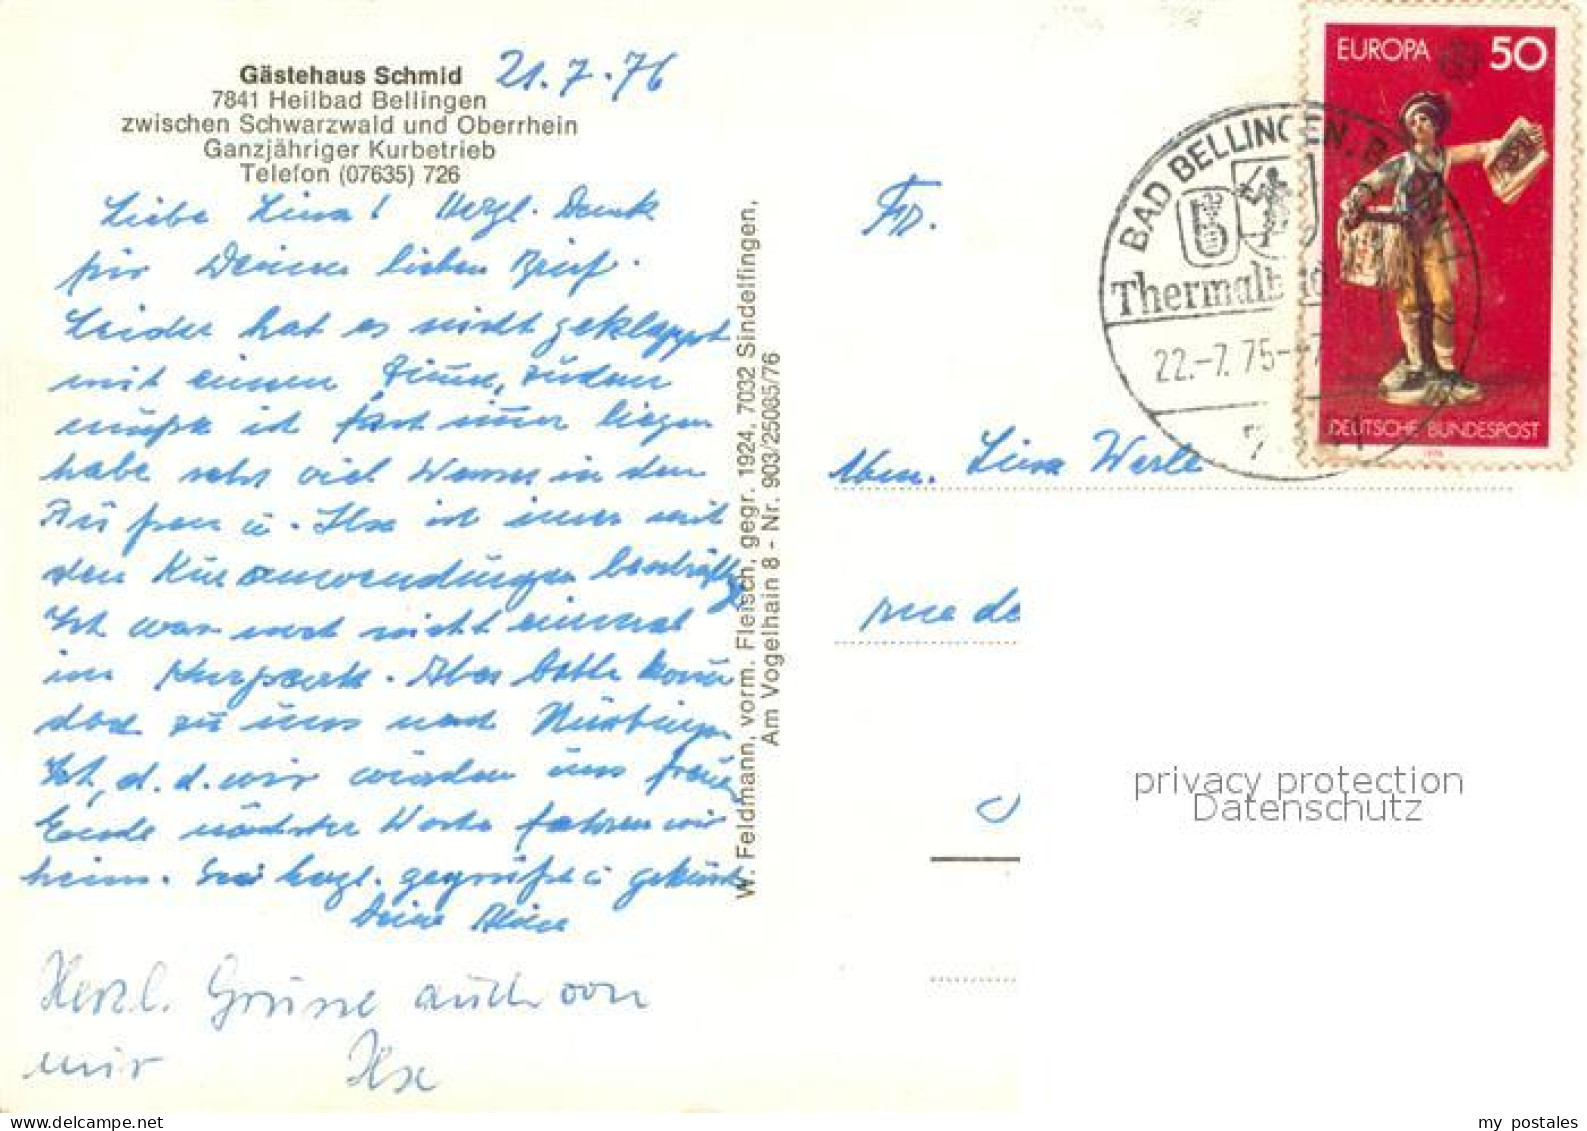 Gästehaus Schmid
7841 Heilbad Bellingen
zwischen Schwarzwald und Oberrhein
Ganzjähriger Kurbetrieb
Telefon (07635) 726
21.7.76
Liebe Lina! Herzl. Dank
für Deinen lieben Brief.
Leider hat es nicht geklappt
mit einem zudem
mußte ich fast immer liegen
habe sehr viel Wasser in den
Füßen u. Ilse ist immer mit
den Kuranwendungen beschäftigt
Ich war noch nicht einmal
im Kurpark. Aber bitte komm
doch zu uns nach
Ich, d. d. wir würden uns freuen
Ende nächster Woche fahren wir
heim. Sei herzl. gegrüßt u geküsst
Deine
Herzl. Grüsse auch von
mir Ilse
W. Feldmann, vorm. Fleisch, gegr. 1924, 7032 Sindelfingen,
Am Vogelhain 8 - Nr. 903/25085/76
EUROPA 50
DEUTSCHE BUNDESPOST
1976
BAD BELLINGEN, B
Thermalb
22.-7.75-
7
Fr.
Lina Werle
rue de
privacy protection
Datenschutz
my postales